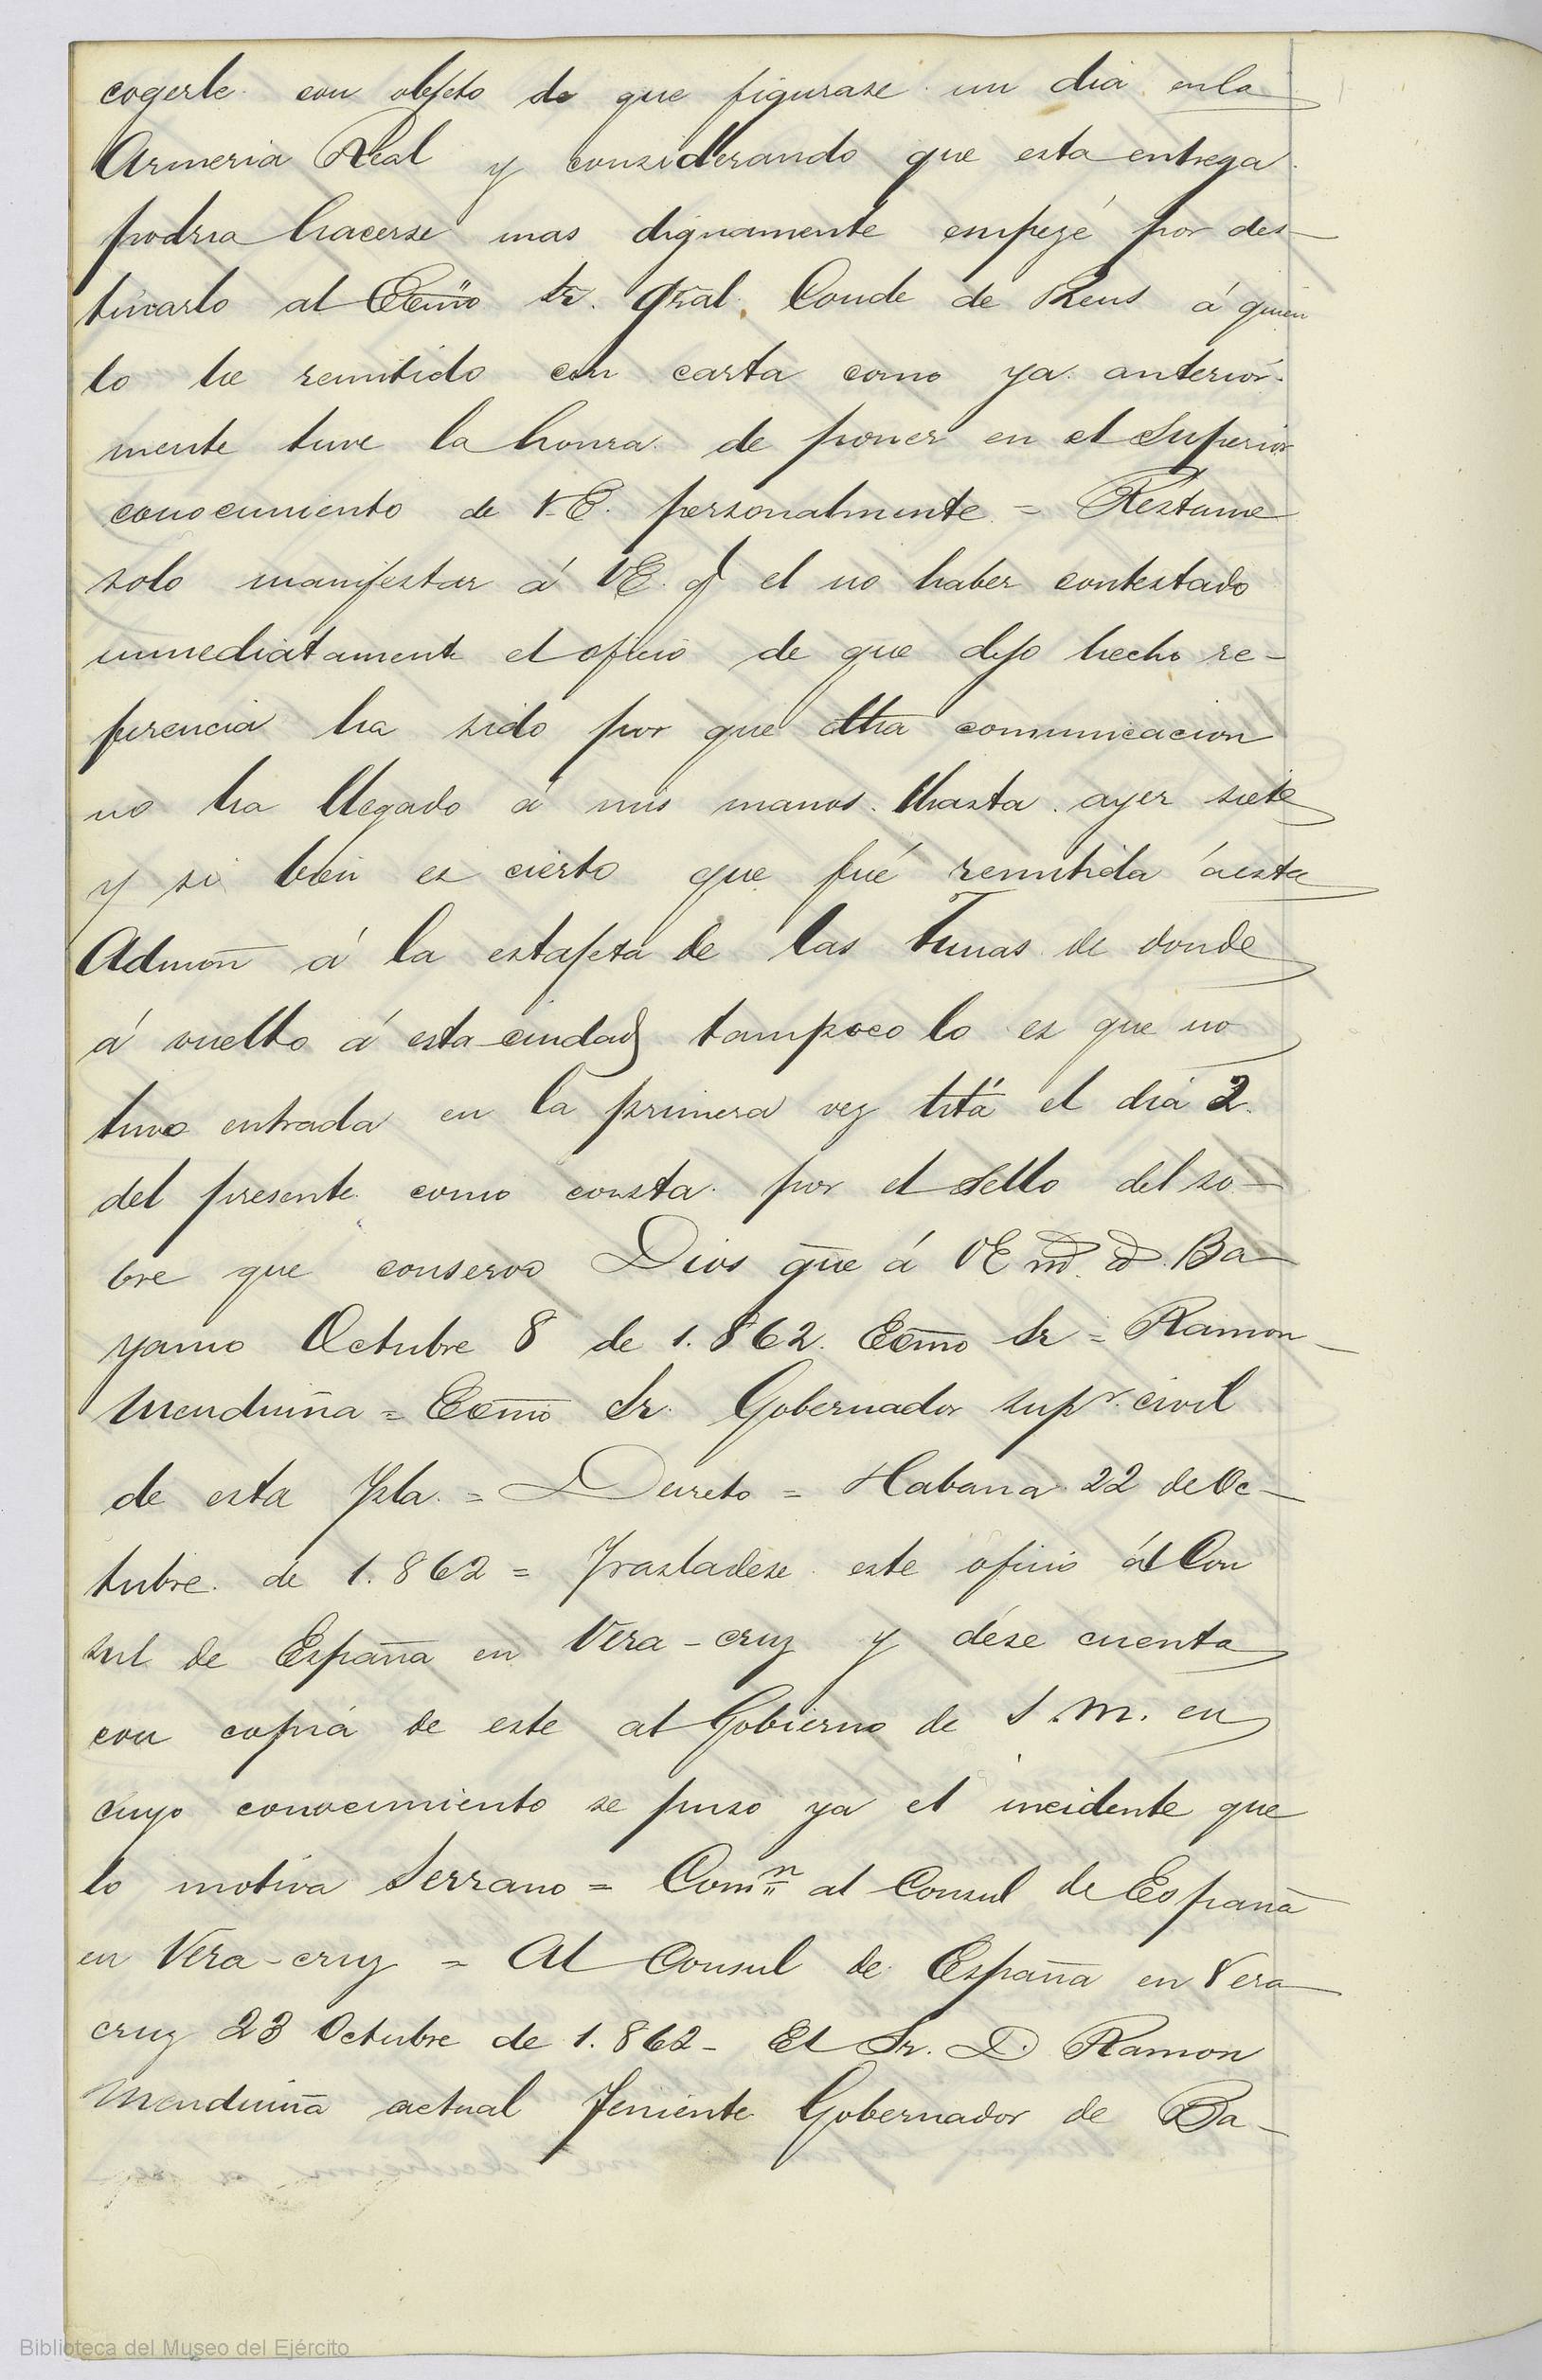 cogerle con objeto de que figurase un dia en la
Armeria Real y considerando que esta entrega
podria hacerse mas dignamente empezé por des-
tinarlo al Ecm̃o Sr. Gr̃al. Conde de Reus á quien
lo he remitido con carta como ya anterior-
mente tuve la honra de poner en el Superior
conocimiento de V.E. personalmente = Restame
solo manifestar á VE. q el no haber contestado
inmediatamente el oficio de que dejo hecho re-
ferencia ha sido por que dha comunicacion
no ha llegado á mis manos hasta ayer siete
y si bien es cierto que fué remitida á esta
Admon̄ á la estafeta de las Tunas de donde
á vuelto á esta ciudad tampoco lo es que no
tuvo entrada en la primera vez hta el dia 2
del presente como consta por el sello del so-
bre que conservo Dios gūe á VE m̄s. as. Ba-
yamo Octubre 8 de 1.862. Ecm̃o Sr = Ramon
Menduiña = Ecm̃o Sr. Gobernador supr. civil
de esta Ysla. = Decreto = Habana 22 de Oc-
tubre de 1.862 = Trasladese este oficio ál Con
sul de España en Vera-cruz y dése cuenta
con copia de este al Gobierno de S.M. en
cuyo conocimiento se puso ya el incidente que
lo motiva Serrano = Comn al Consul de España
en Vera-cruz = Al Consul de España en Vera
cruz 23 Octubre de 1.862 - El Sr. D. Ramon
Menduiña actual Teniente Gobernador de Ba-
Biblioteca del Museo del Ejército